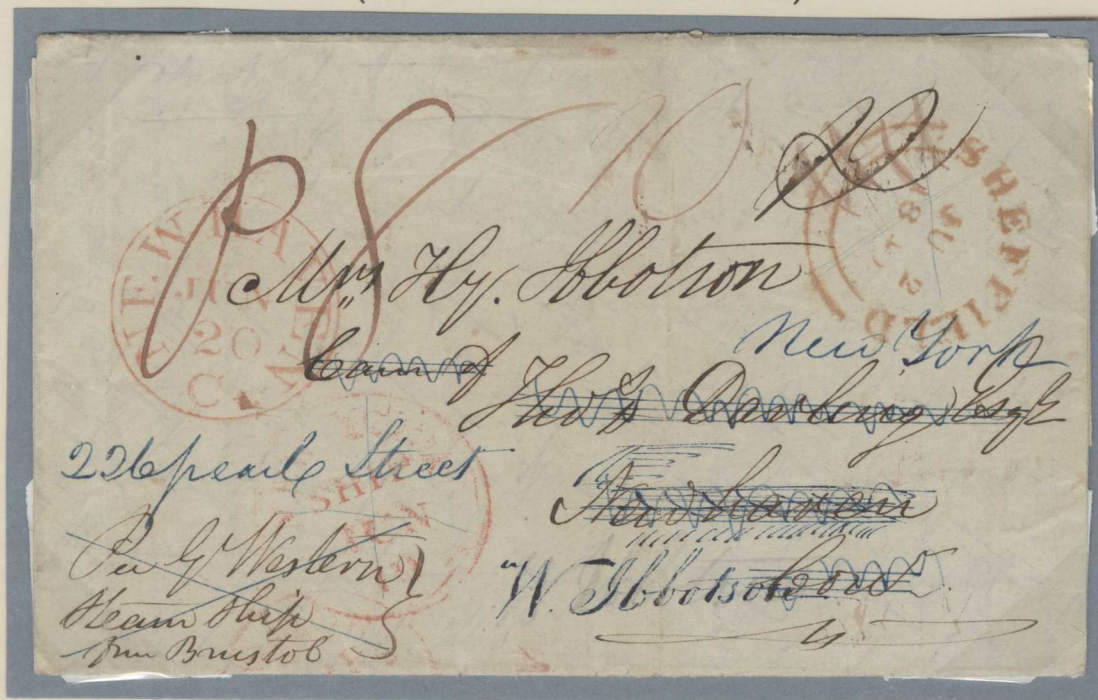 P 8 10 20
SHEFFIELD
JU 2
NEW HAVEN
JUN
20
Mrs Hy. Ibbotson
New York
Care of
Thos Darling Esqr
226 pearl Street
SHIP
JUN
Newhaven
Per Gt Western
Steam Ship
from Bristol
W. Ibbotson
Cont